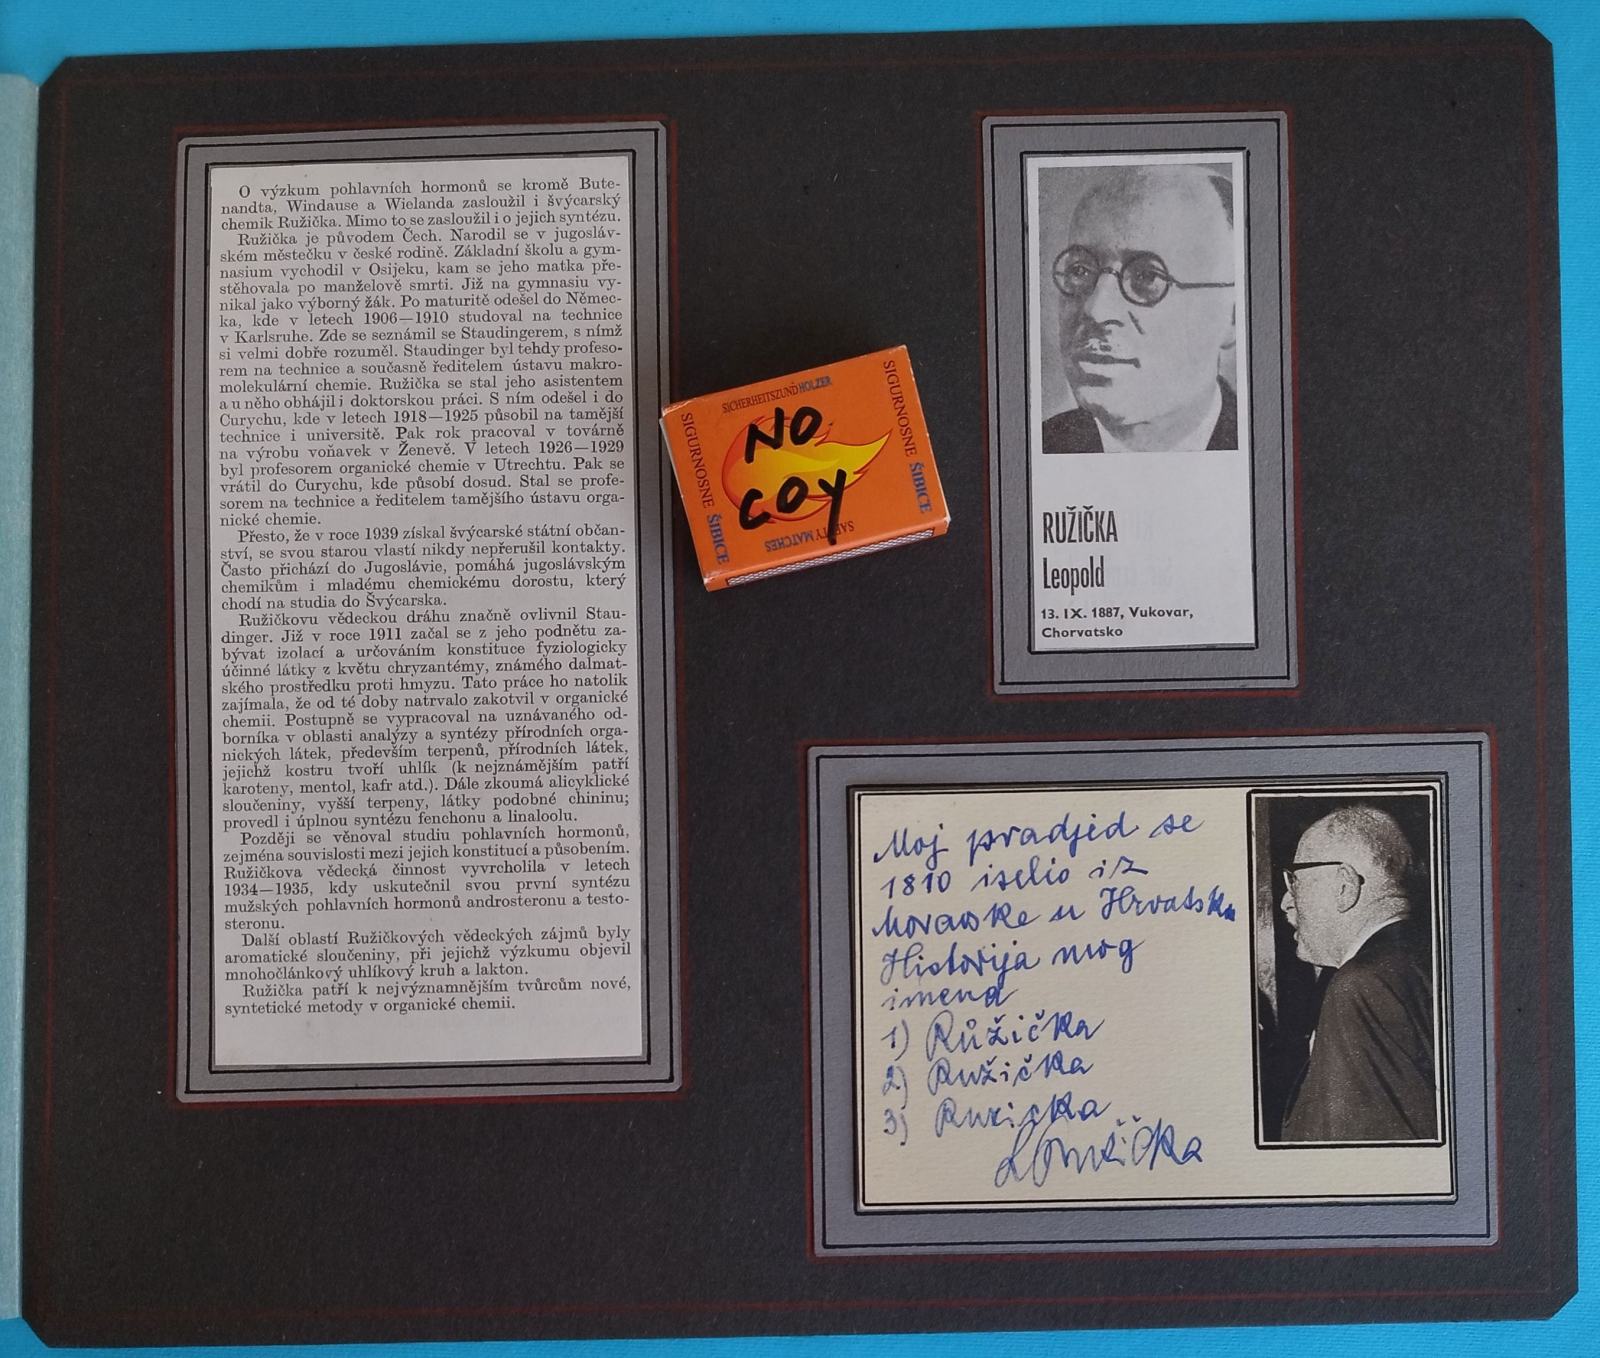 O výzkum pohlavních hormonů se kromě Bute-
nandta, Windause a Wielanda zasloužil i švýcarský
chemik Ružička. Mimo to se zasloužil i o jejich syntézu.
Ružička je původem Čech. Narodil se v jugosláv-
ském městečku v české rodině. Základní školu a gym-
nasium vychodil v Osijeku, kam se jeho matka pře-
stěhovala po manželově smrti. Již na gymnasiu vy-
nikal jako výborný žák. Po maturitě odešel do Němec-
ka, kde v letech 1906—1910 studoval na technice
v Karlsruhe. Zde se seznámil se Staudingerem, s nímž
si velmi dobře rozuměl. Staudinger byl tehdy profeso-
rem na technice a současně ředitelem ústavu makro-
molekulární chemie. Ružička se stal jeho asistentem
a u něho obhájil i doktorskou práci. S ním odešel i do
Curychu, kde v letech 1918—1925 působil na tamější
technice i universitě. Pak rok pracoval v továrně
na výrobu voňavek v Ženevě. V letech 1926—1929
byl profesorem organické chemie v Utrechtu. Pak se
vrátil do Curychu, kde působí dosud. Stal se profe-
sorem na technice a ředitelem tamějšího ústavu orga-
nické chemie.
Přesto, že v roce 1939 získal švýcarské státní občan-
ství, se svou starou vlastí nikdy nepřerušil kontakty.
Často přichází do Jugoslávie, pomáhá jugoslávským
chemikům i mladému chemickému dorostu, který
chodí na studia do Švýcarska.
Ružičkovu vědeckou dráhu značně ovlivnil Stau-
dinger. Již v roce 1911 začal se z jeho podnětu za-
bývat izolací a určováním konstituce fyziologicky
účinné látky z květu chryzantémy, známého dalmat-
ského prostředku proti hmyzu. Tato práce ho natolik
zajímala, že od té doby natrvalo zakotvil v organické
chemii. Postupně se vypracoval na uznávaného od-
borníka v oblasti analýzy a syntézy přírodních orga-
nických látek, především terpenů, přírodních látek,
jejichž kostru tvoří uhlík (k nejznámějším patří
karoteny, mentol, kafr atd.). Dále zkoumá alicyklické
sloučeniny, vyšší terpeny, látky podobné chininu;
provedl i úplnou syntézu fenchonu a linaloolu.
Později se věnoval studiu pohlavních hormonů,
zejména souvislosti mezi jejich konstitucí a působením.
Ružičkova vědecká činnost vyvrcholila v letech
1934—1935, kdy uskutečnil svou první syntézu
mužských pohlavních hormonů androsteronu a testo-
steronu.
Další oblastí Ružičkových vědeckých zájmů byly
aromatické sloučeniny, při jejichž výzkumu objevil
mnohočlánkový uhlíkový kruh a lakton.
Ružička patří k nejvýznamnějším tvůrcům nové,
syntetické metody v organické chemii.
SICHERHEITSZUNDHOLZER
SIGURNOSNE ŠIBICE
NO
COY
SIGURNOSNE ŠIBICE
SAFETY MATCHES
RUŽIČKA
Leopold
13. IX. 1887, Vukovar,
Chorvatsko
Moj pradjed se
1810 iselio iz
Moravske u Hrvatsku
Historija mog
imena
1) Růžička
2) Ružička
3) Ruzicka
L Ružička